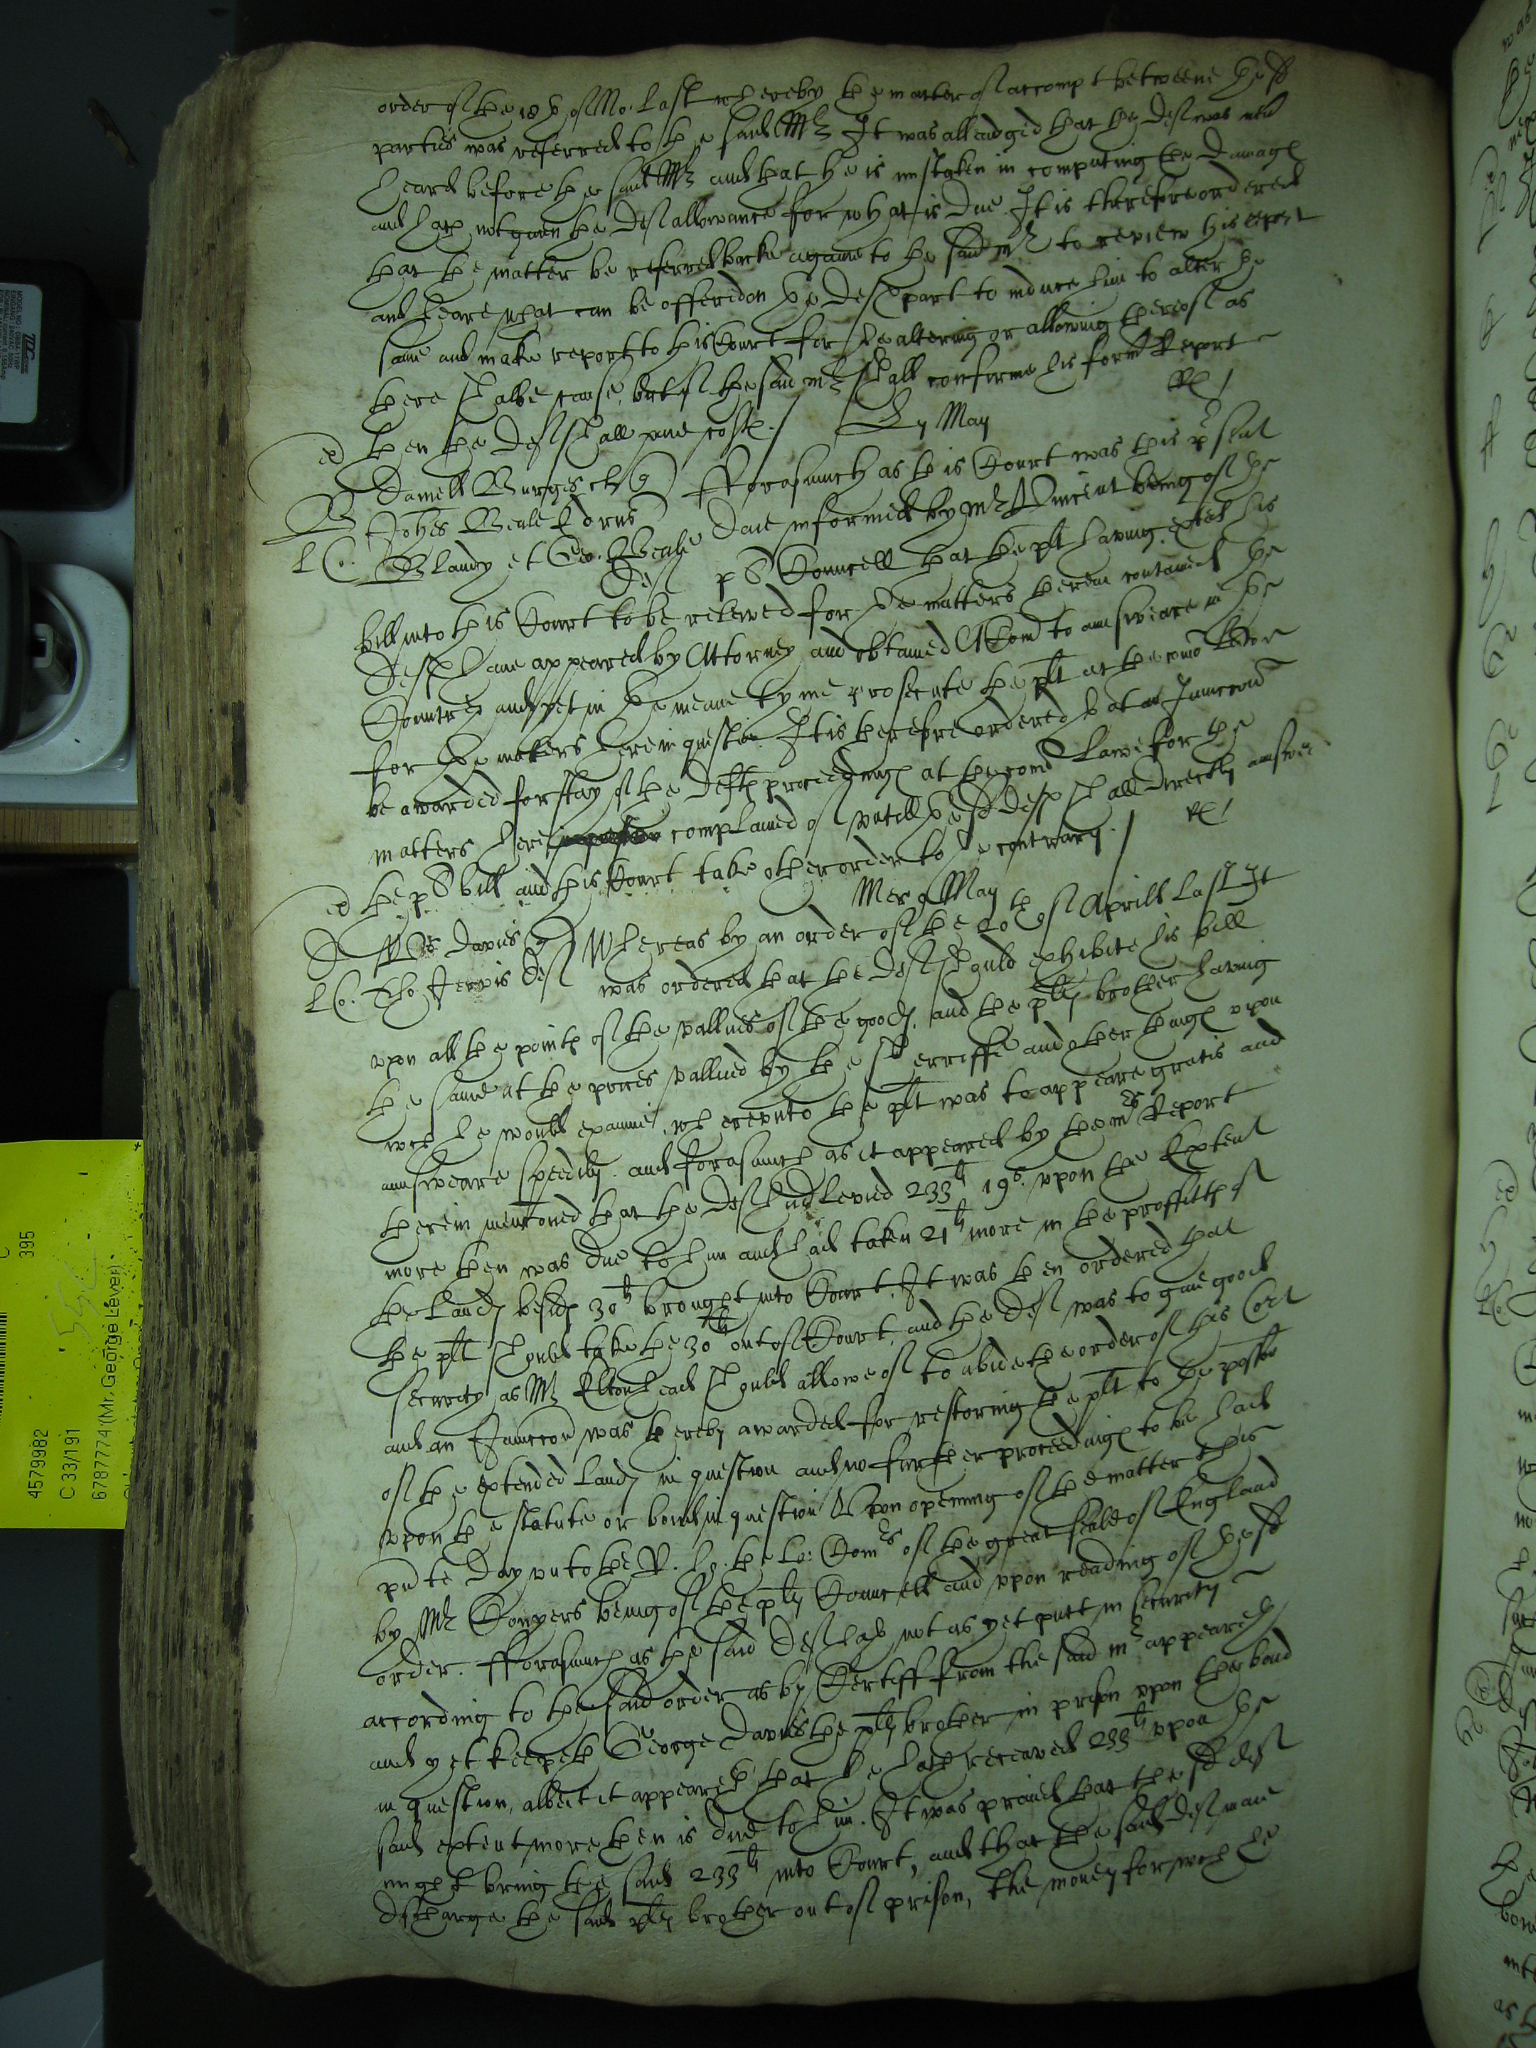 order of the 18th of Mo. last whereby the matter of accompt betweene the sd
parties was referred to the said Mr It was alleadged that the Deft was not
heard before the said Mr and that he is mistaken in computing the Damages
and hath not given the Deft allowance for what is due. It is therefore ordered
that the matter be referred backe againe to the said Mr to review his report
and heare what can be offered on the Deft part to induce him to alter the
same and make report to this Court for the altering or allowing thereof as
there shalbe cause, but if the said Mr shall confirme his form Report
then the Deft shall paie costs. May
Daniell Burges Fforasmuch as this Court was this psent
Johes Beale
Blandy et Geo. Beale Daie informed by Mr Vincent being of the
Def p Councell that the plt having exhited his
bill into this Court to be releived for the matters therein contained the
Defts have appeared by Attorney and obtained a Com to answeare in the
Countrey and yet in the meane tyme prosecute the plt at the como Lawe
for the matters here in question. It is therefore ordered that an Iniuncon
be awarded for stay of the Defts proceedings at the comon Lawe for the
matters here complained of untill the sd Defts shall directly answer
the pl bill and this Court take other order to the contrary.
Mer 9 May
Davies Whereas by an order of the 20th of Aprill last It
LC. Tho. Jervis Def was ordered that the Deft should exhibite his bill
upon all the points of the vallues of the goods, and the plts brother having
the same at the prices vallued by the Sherriffe and other things upon
wch he would examine, whereunto the plt was to appeare gratis and
answeare speedily. and forasmuch as it appeared by the Mrs Report
therein mentoned that the Deft had levied 233li 19s. upon the Extent
more then was due to him and had taken 21li more in the proffitts of
the Lands besides 30li brought into Court. It was then ordered that
the plt should take the 30li out of Court, and the Deft was to give good
security as Mr should allowe of to abide the order of this Cort
and an Iniuncon was thereby awarded for restoring the plt to the posson
of the extended lands in question and no further proceedings to be had
upon the statute or bond in question Upon opening of the matter this
pnte Day unto the R. ho. the Lo: Comrs of the great seale of England
by Mr Conyers being of the plts Councell and upon reading of the sd
order. Fforasmuch as the said Deft hath not as yet putt in security
according to the said order as by Certiff from the said Mr appeareth
and yet keepeth George Davies the plts brother in prison upon the bond
in question, albeit it appeareth that he hath receaved 233li upon the
said extent more then is due to him. It was praied that the sd deft
might bring the said 233li into Court, and that the said Deft maie
discharge the said plts brother out of prison, the money for wch he
395
4579982
C 33/191
6787774 (Mr. George Lever)